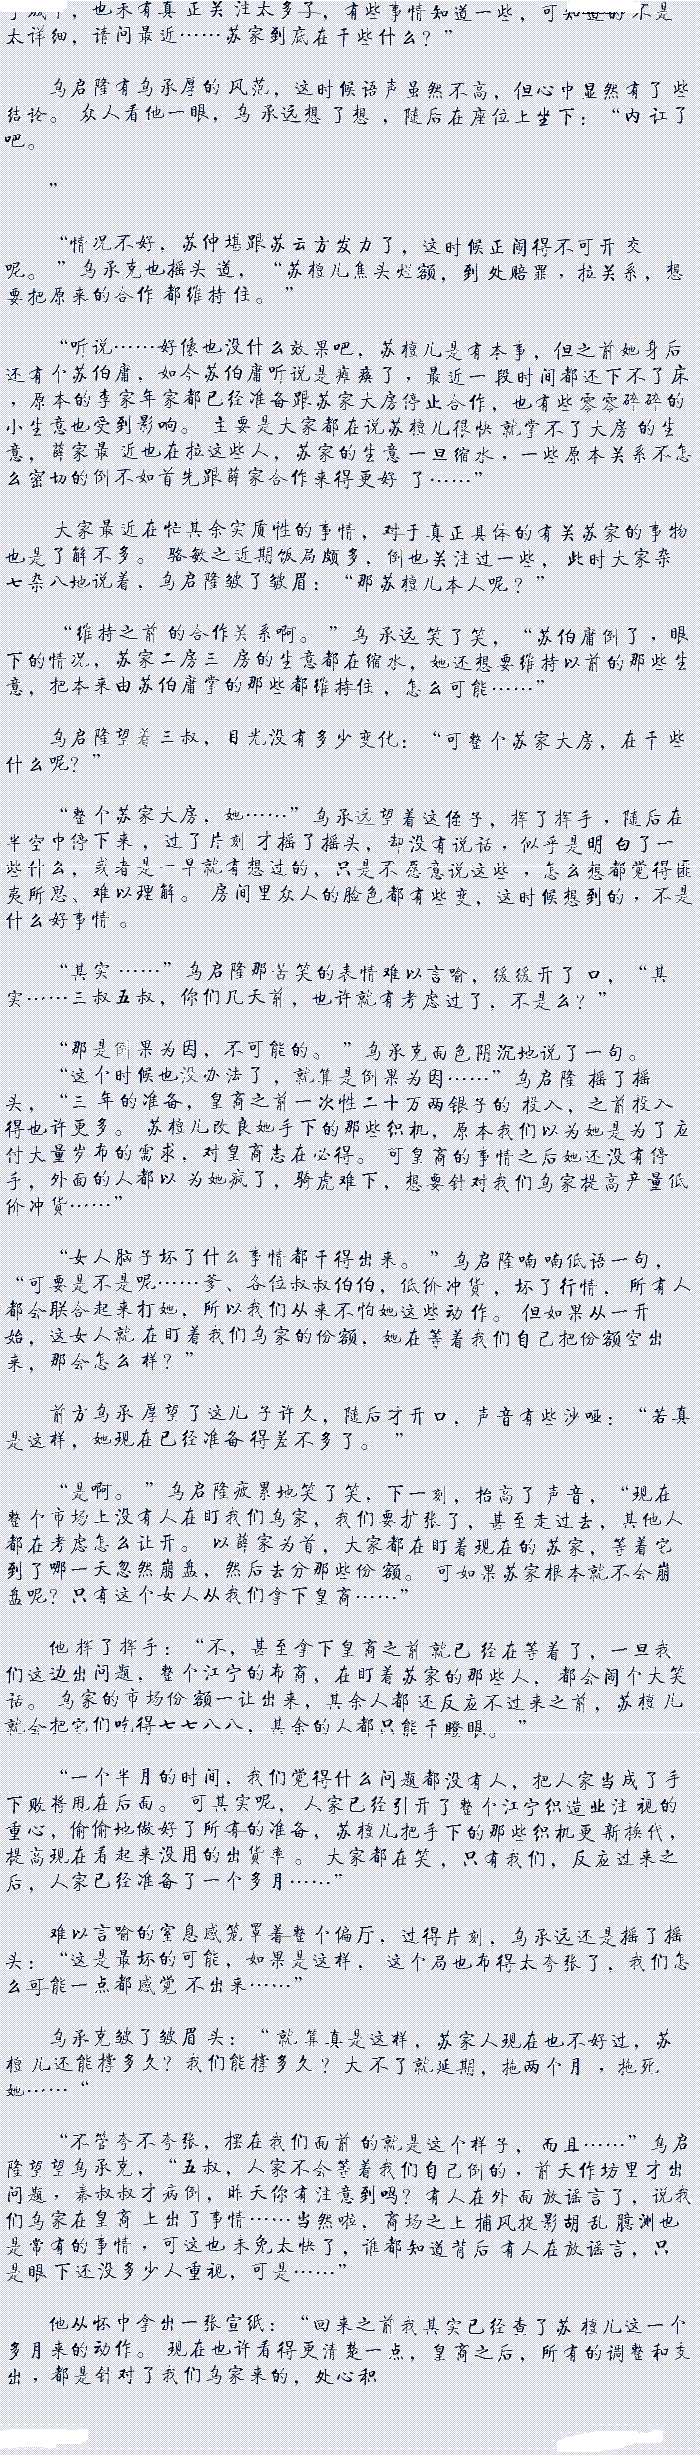 太详细，请问最近……苏家到底在干些什么？”
乌启隆有乌承厚的风范，这时候语声虽然不高，但心中显然有了些
结论。 众人看他一眼，乌承远想了想 ，随后在座位上坐下：“内讧了
吧。
”
“情况不好，苏仲堪跟苏云方发力了，这时候正闹得不可开交
呢。 ” 乌承克也摇头道， “苏檀儿焦头烂额，到处赔罪﹑拉关系，想
要把原来的合作都维持住。 ”
“听说……好像也没什么效果吧，苏檀儿是有本事，但之前她身后
还有个苏伯庸，如今苏伯庸听说是瘫痪了﹐最近一段时间都还下不了床
，原本的李家年家都已经准备跟苏家大房停止合作，也有些零零碎碎的
小生意也受到影响。 主要是大家都在说苏檀儿很快就掌不了大房的生
意，薛家最近也在拉这些人，苏家的生意一旦缩水﹐一些原本关系不怎
么密切的倒不如首先跟薛家合作来得更好 了……”
大家最近在忙其余实质性的事情，对于真正具体的有关苏家的事物
也是了解不多。 骆敏之近期饭局颇多，倒也关注过一些， 此时大家杂
七杂八地说着，乌启隆皱了皱眉：“那苏檀儿本人呢？”
“维持之前的合作关系啊。 ” 乌承远笑了笑， “苏伯庸倒了﹐眼
下的情况，苏家二房三 房的生意都在缩水，她还想要维持以前的那些生
意，把本来由苏伯庸掌的那些都维持住 ，怎么可能……”
乌启隆望着三叔，目光没有多少变化：“可整个苏家大房，在干些
什么呢？”
“整个苏家大房，她……”乌承远望着这侄子，挥了挥手﹐随后在
半空中停下来 ，过了片刻才摇了摇头，却没有说话﹐似乎是明白了一
些什么，或者是一早就有想过的，只是不愿意说这些 ﹐怎么想都觉得匪
夷所思、难以理解。 房间里众人的脸色都有些变，这时候想到的﹐不是
什么好事情 。
“其实 ……”乌启隆那苦笑的表情难以言喻，缓缓开了口，“其
实……三叔五叔，你们几天前，也许就有考虑过了，不是么？”
“那是倒果为因，不可能的。 ”乌承克面色阴沉地说了一句。
“这个时候也没办法了 ，就算是倒果为因……”乌启隆 摇了摇
头，“三 年的准备，皇商之前一次性二十万两银子的 投入，之前投入
得也许更多。 苏檀儿改良她手下的那些织机，原本我们以为她是为了应
付大量岁布的需求，对皇商志在必得。 可皇商的事情之后她还没有停
手，外面的人都以 为她疯了，骑虎难下，想要针对我们乌家提高产量低
价冲货……”
“女人脑子坏了什么事情都干得出来。 ” 乌启隆喃喃低语一句，
“可要是不是呢……爹、各位叔叔伯伯，低价冲货 ，坏了行情， 所有人
都会联合起来打她，所以我们从来不怕她这些动作。 但如果从一开
始，这女人就 在盯着我们乌家的份额，她在等着我们自己把份额空出
来，那会怎么 样？”
前方乌承 厚望了这儿 子许久，随后才开口，声音有些沙哑：“若真
是这样，她现在已经准备得差不多了。 ”
“是啊。 ” 乌启隆疲累地笑了笑，下一刻，抬高了 声音， “现在
整个市场上没有人在盯我们乌家，我们要扩张了，甚至走过去，其他人
都在考虑怎么让开。 以薛家为首，大家都在盯着现在的苏家，等着它
到了哪一天忽然崩盘，然后去分那些份额。 可如果苏家根本就不会崩
盘呢？只有这个女人从我们拿下皇商……”
他挥了挥手：“不，甚至拿下皇商之前就已 经在等着了，一旦我
们这边出问题，整个江宁的布商，在盯着苏家的那些人，都会闹个大笑
话。 乌家的市场份额一让出来，其余人都还反应不过来之前，苏檀儿
就会把它们吃得七七八八，其余的人都只能干瞪眼。 ”
“一个半月的时间，我们觉得什么问题都没有人，把人家当成了手
下败将甩在后面。 可其实呢， 人家已经引开了整个江宁织造业注视的
重心，偷偷地做好了所有的准备，苏檀儿把手下的那些织机更新换代，
提高现在看起来没用的出货率。 大家都在笑，只有我们，反应过来之
后，人家已经准备了一个多月……”
难以言喻的窒息感笼罩着整个偏厅，过得片刻，乌承远还是摇了摇
头：“这是最坏的可能，如果是这样， 这个局也布得太夸张了，我们怎
么可能一点都感觉不出来……”
乌承克皱了皱眉头：“就算真是这样，苏家人现在也不好过，苏
檀儿还能撑多久？我们能撑多久？大不了就延期，拖两个月﹐拖死
她……“
“不管夸不夸张，摆在我们面前的就是这个样子， 而且……” 乌启
隆望望乌承克，“五叔，人家不会等着我们自己倒的﹐前天作坊里才出
问题，秦叔叔才病倒，昨天你有注意到吗？有人在外面放谣言了，说我
们乌家在皇商上出了事情……当然啦，商场之上捕风捉影胡乱臆测也
是常有的事情﹐可这也未免太快了，谁都知道背后有人在放谣言，只
是眼下还没多少人重视，可是……”
他从怀中拿出一张宣纸：“回来之前我其实已经查了苏檀儿这一个
多月来的动作。 现在也许看得更清楚一点，皇商之后，所有的调整和支
出﹐都是针对了我们乌家来的，处心积